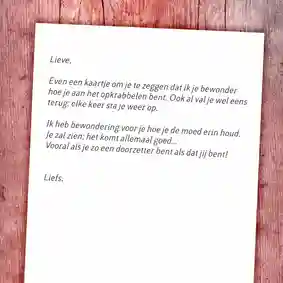 Lieve,
Even een kaartje om je te zeggen dat ik je bewonder
hoe je aan het opkrabbelen bent. Ook al val je wel eens
terug: elke keer sta je weer op.
Ik heb bewondering voor je hoe je de moed erin houd.
Je zal zien; het komt allemaal goed...
Vooral als je zo een doorzetter bent als dat jij bent!
Liefs,